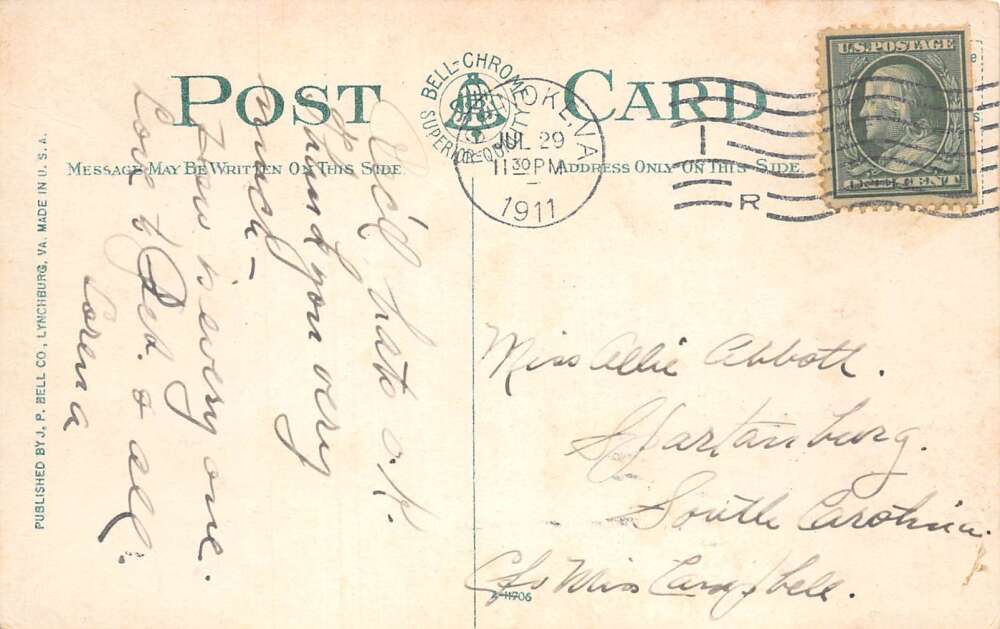 POST CARD
BELL-CHROME
SUPERIOR-QUALITY
MESSAGE MAY BE WRITTEN ON THIS SIDE
ADDRESS ONLY ON THIS SIDE
U.S. POSTAGE
ONE CENT
VA
JUL 29
11 30 PM
1911
I
R
Rec'd hats o.k.
Thank you very
much –
How is every one.
Love to & all.
Lorena
Miss Allie Abbott.
Spartanburg.
South Carolina.
C/o Miss Campbell.
A-11706
PUBLISHED BY J. P. BELL CO., LYNCHBURG, VA. MADE IN U. S. A.